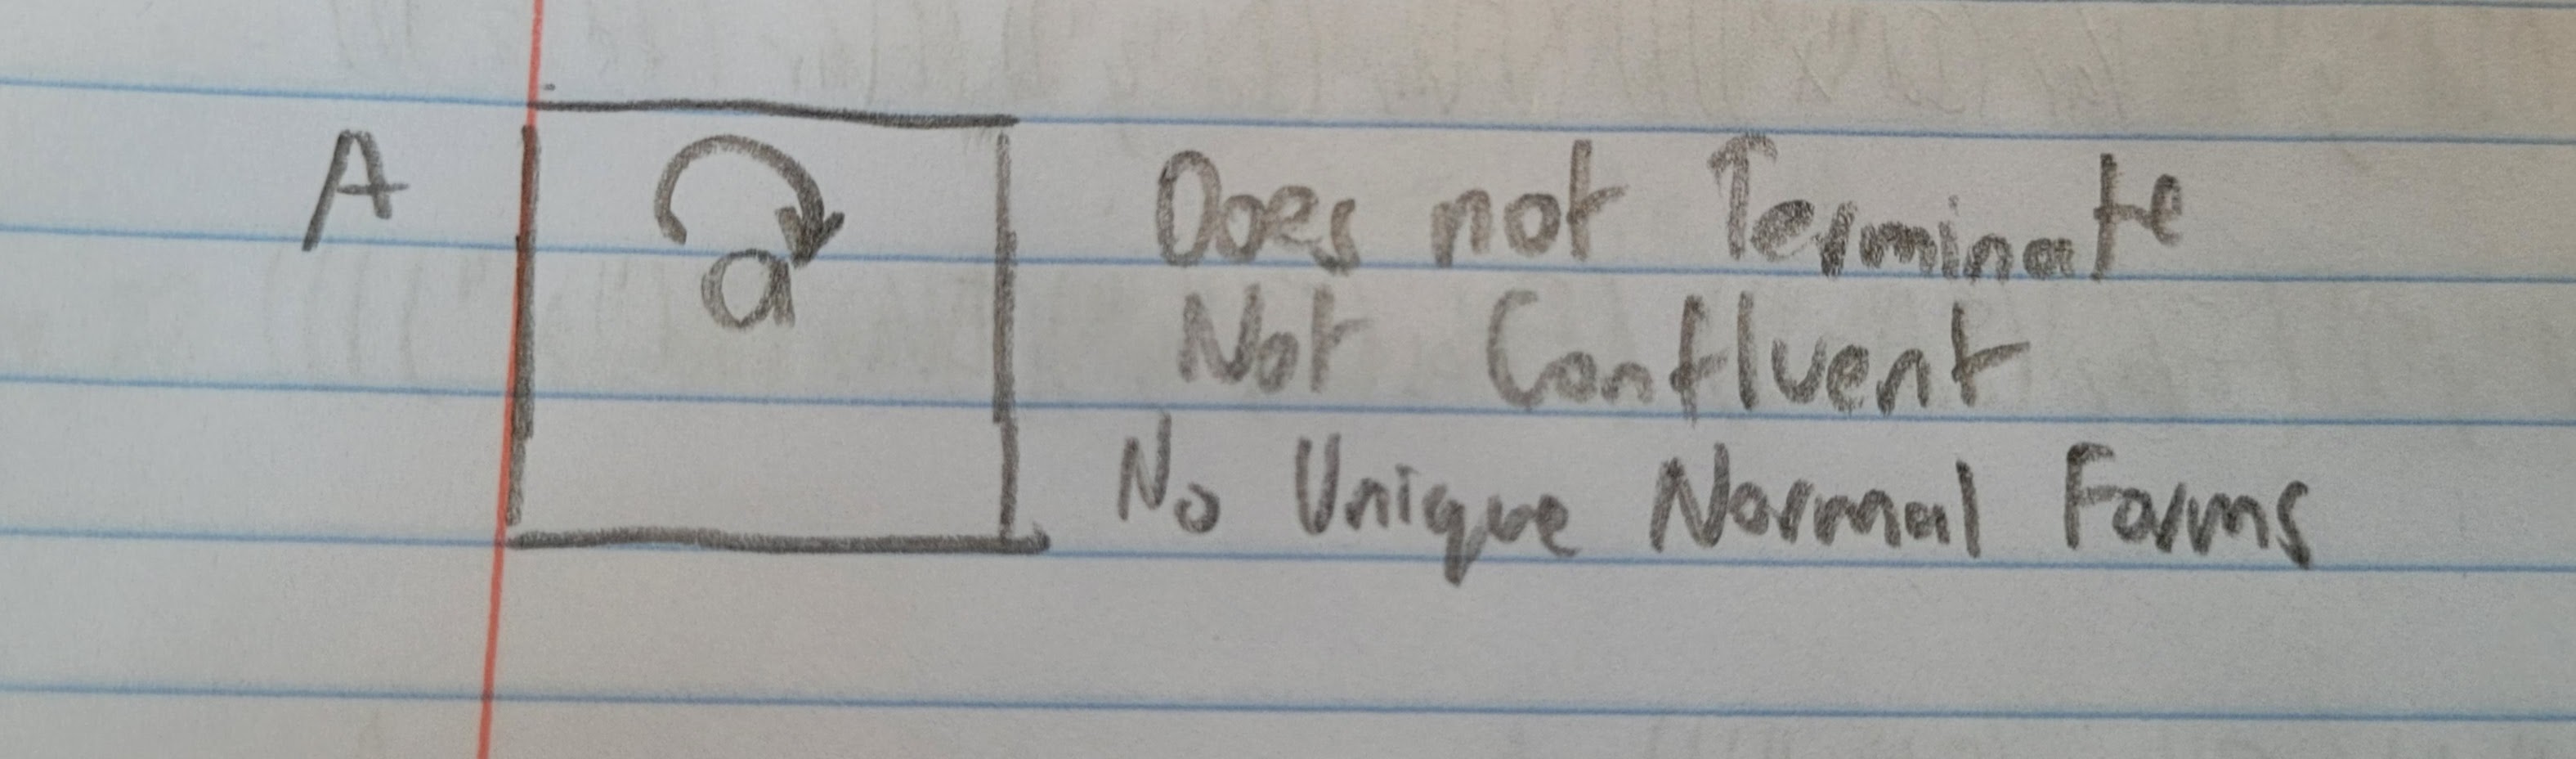 A
a
Does not Terminate
Not Confluent
No Unique Normal Forms